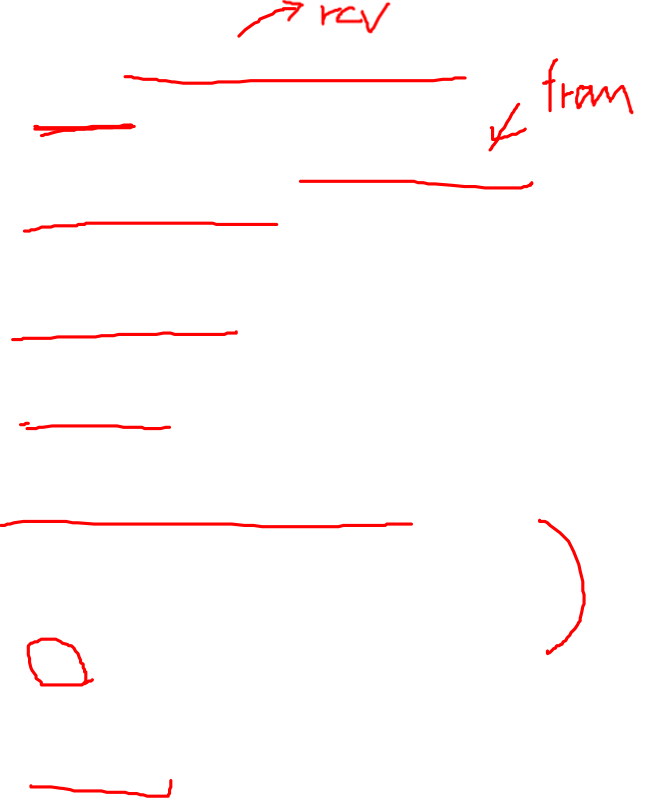 rcv
from